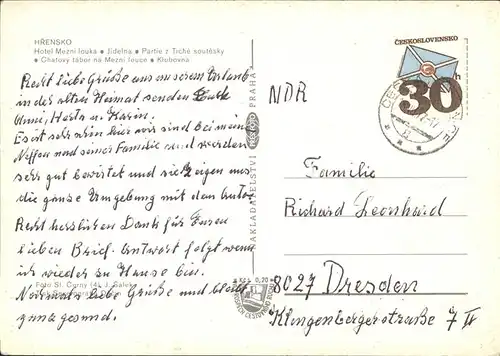 HŘENSKO
Hotel Mezní louka ● Jídelna ● Partie z Tiché soutěsky
● Chatový tábor na Mezní louce ● Klubovna
Recht liebe Grüße aus unserem Urlaub
in der alten Heimat senden Euch
Anni, Herta u Karin.
Es ist sehr schön hier wir sind bei meinen
Neffen und seiner Familie und werden
sehr gut bewirtet und sie zeigen uns
die ganze Umgebung mit dem Auto.
Recht herzlichen Dank für Euren
lieben Brief. Antwort folgt wenn
ich wieder zu Hause bin.
Nochmals liebe Grüße und bleibt
ganz gesund.
Foto St. Černý (4), J. Sálek
NAKLADATELSTVÍ PRESSFOTO PRAHA
Kčs 0,20
ČESKOSLOVENSKO
30 h
NDR
Familie
Richard Leonhard
8027 Dresden
Klingenbergerstraße 7 II